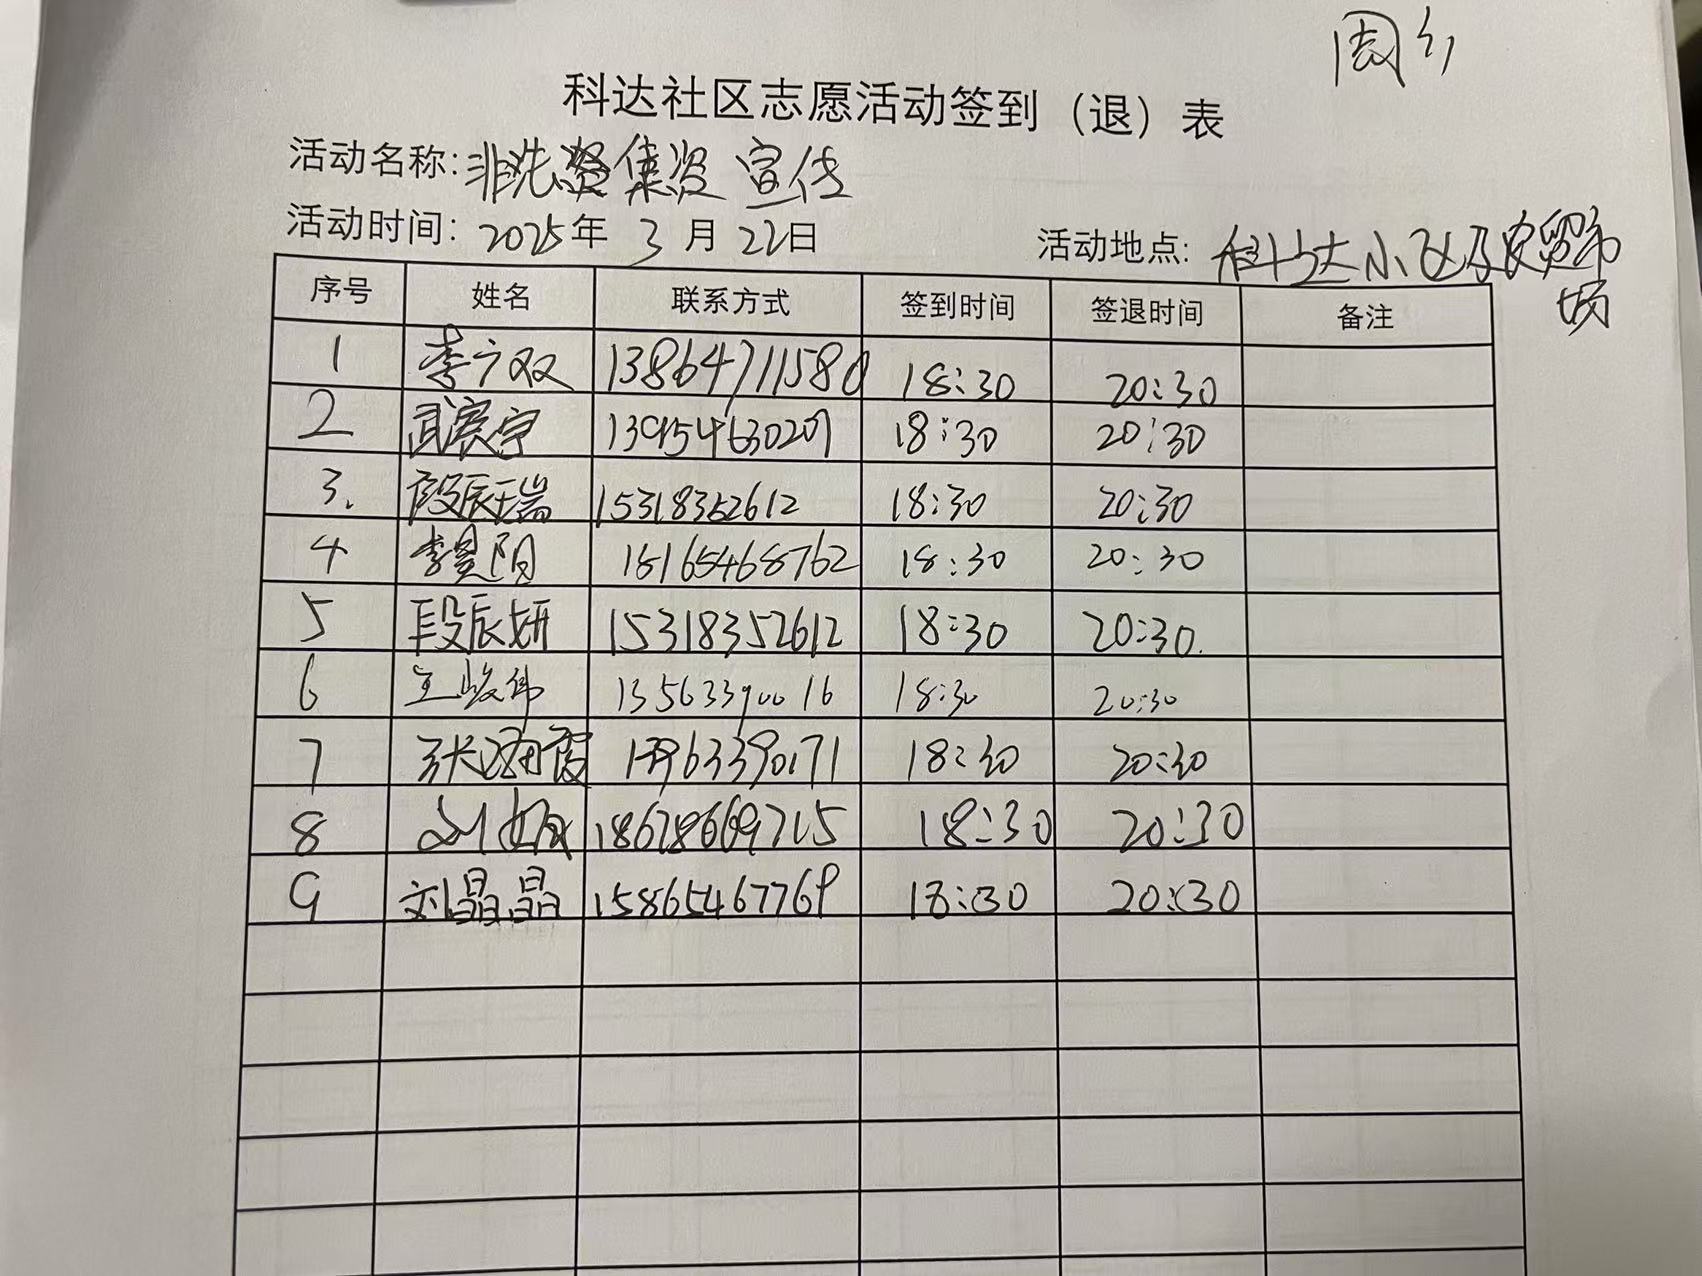 科达社区志愿活动签到（退）表
活动名称: 非法集资宣传
活动时间: 2025年 3 月 22日
活动地点: 科达小区及农贸市场
序号 姓名 联系方式 签到时间 签退时间 备注
1 李广双 13864711580 18:30 20:30
2 武宾宁 13954630207 18:30 20:30
3. 段辰瑞 15318352612 18:30 20:30
4 李昱阳 18165468762 18:30 20:30
5 段辰妍 15318352612 18:30 20:30.
6 王峻伟 13563390016 18:30 20:30
7 张海霞 18:30 20:30
8 刘 18678669715 18:30 20:30
9 刘晶晶 15865467769 18:30 20:30